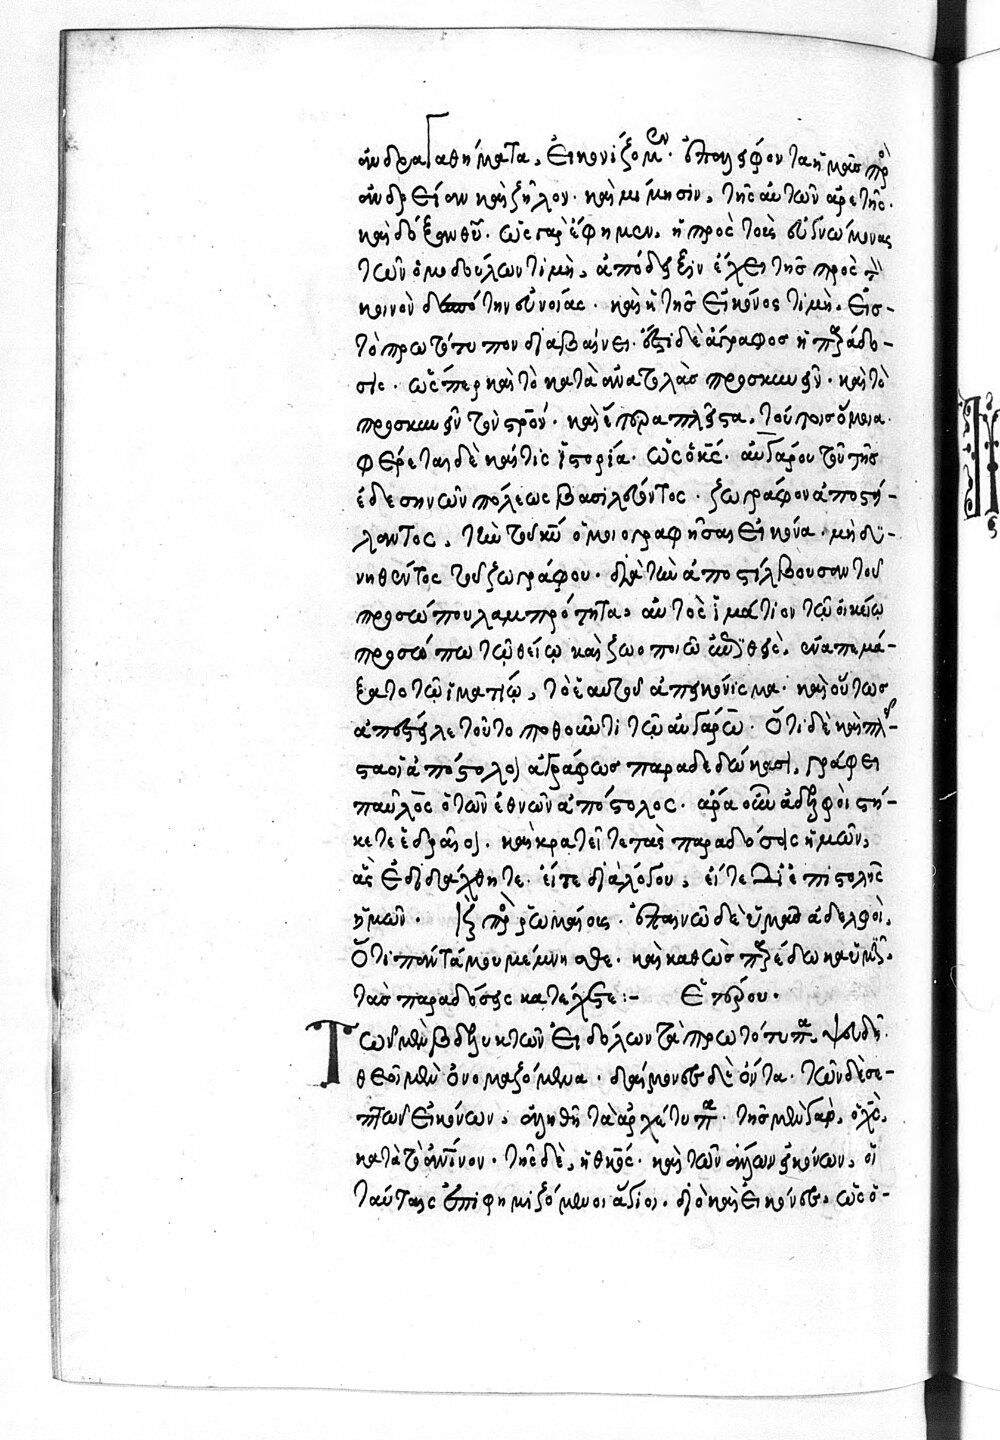 ἀνδραγαθήματα. εἰκονίζομεν. ἐπαλεῖφον τὰ ἡμᾶς πρὸ
ἀνδρείαν καὶ ζῆλον. καὶ μίμησιν. τῆς αὐτῶν ἀρετῆς.
καὶ δόξαν θῦ. ὡς γὰρ ἔφημεν. ἡ πρὸς τοὺς εὐγνώμονας
τῶν ὁμοδούλων τιμὴ, ἀπόδειξιν ἔχει τῆς πρὸς τὸν
κοινὸν δεσπότην εὐνοίας. καὶ ἡ τῆς εἰκόνος τιμὴ. εἰς-
τὸ πρωτότυπον διαβαίνει. ἔστι δὲ ἄγραφος ἡ παράδο-
σις. ὥσπερ καὶ τὸ κατὰ ἀνατολὰς προσκυνεῖν. καὶ τὸ
προσκυνεῖν τὸν στρον. καὶ ἕτερα πλεῖστα. τούτοις ὅμοια.
φέρεται δὲ καὶ τὶς ἱστορία. ὡς ὁ κς. αὐγάρου τοῦ τῆς
ἐδεσηνῶν πόλεως βασιλεύοντος. ζωγράφον ἀποστεί-
λαντος, τὴν τοῦ κυ ὁμοιογραφῆσαι εἰκόνα. μὴ δυ-
νηθέντος τοῦ ζωγράφου. διὰ τὴν ἀποστίλβουσαν τοῦ
προσώπου λαμπρότητα. αὐτὸς ἱμάτιον τῷ οἰκείῳ
προσώπω τῷ θείῳ καὶ ζωοποιῷ ἐπιθεὶς. ἐναπεμά-
ξατο τῷ ἱματίῳ, τὸ ἑαυτοῦ ἀπεικόνισμα. καὶ οὕτως
ἀπέστειλε τοῦτο ποθοῦντι τῷ αὐγάρῳ. Ὅτι δὲ καὶ πλεῖ-
στα οἱ ἀπόστολοι ἀγράφως παραδεδώκασι, γράφει
παῦλος ὁ τῶν ἐθνῶν ἀπόστολος. ἄρα οὖν ἀδελφοὶ στή-
κετε ἑδραῖοι. καὶ κρατεῖτε τὰς παραδόσεις ἡμῶν,
ἃς ἐδιδάχθητε. εἴτε διὰ λόγου, εἴτε δι' ἐπιστολῆς
ἡμῶν. καὶ πρὸς ῥωμαίοις. ἐπαινῶ δὲ ὑμᾶς ἀδελφοὶ.
Ὅτι πάντα μου μέμνησθε. καὶ καθὼς παρέδωκα ὑμῖν.
τὰς παραδόσεις κατέχετε:- Ἑτέρου.
Τῶν μὲν βδελυκτῶν εἰδώλων τὰ πρωτότυπα. ψευδῆ.
θεοὶ μὲν ὀνομαζόμενα. δαίμονες δὲ ὄντα. τῶν δὲ σε-
πτῶν εἰκόνων, ἀληθῆ τὰ ἀρχέτυπα. τῆς μὲν γὰρ, ὁ χς,
κατὰ τὸ ἀννινον. τῆς δὲ, ἡ θκος. καὶ τῶν ἄλλων εἰκόνων, οἱ
ταύταις ἐπιφημιζόμενοι ἅγιοι. διὸ καὶ εἰκόνες. ὡς ὁ-